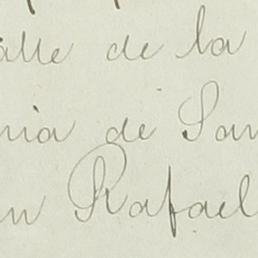 alle de la
nia de San
n Rafael